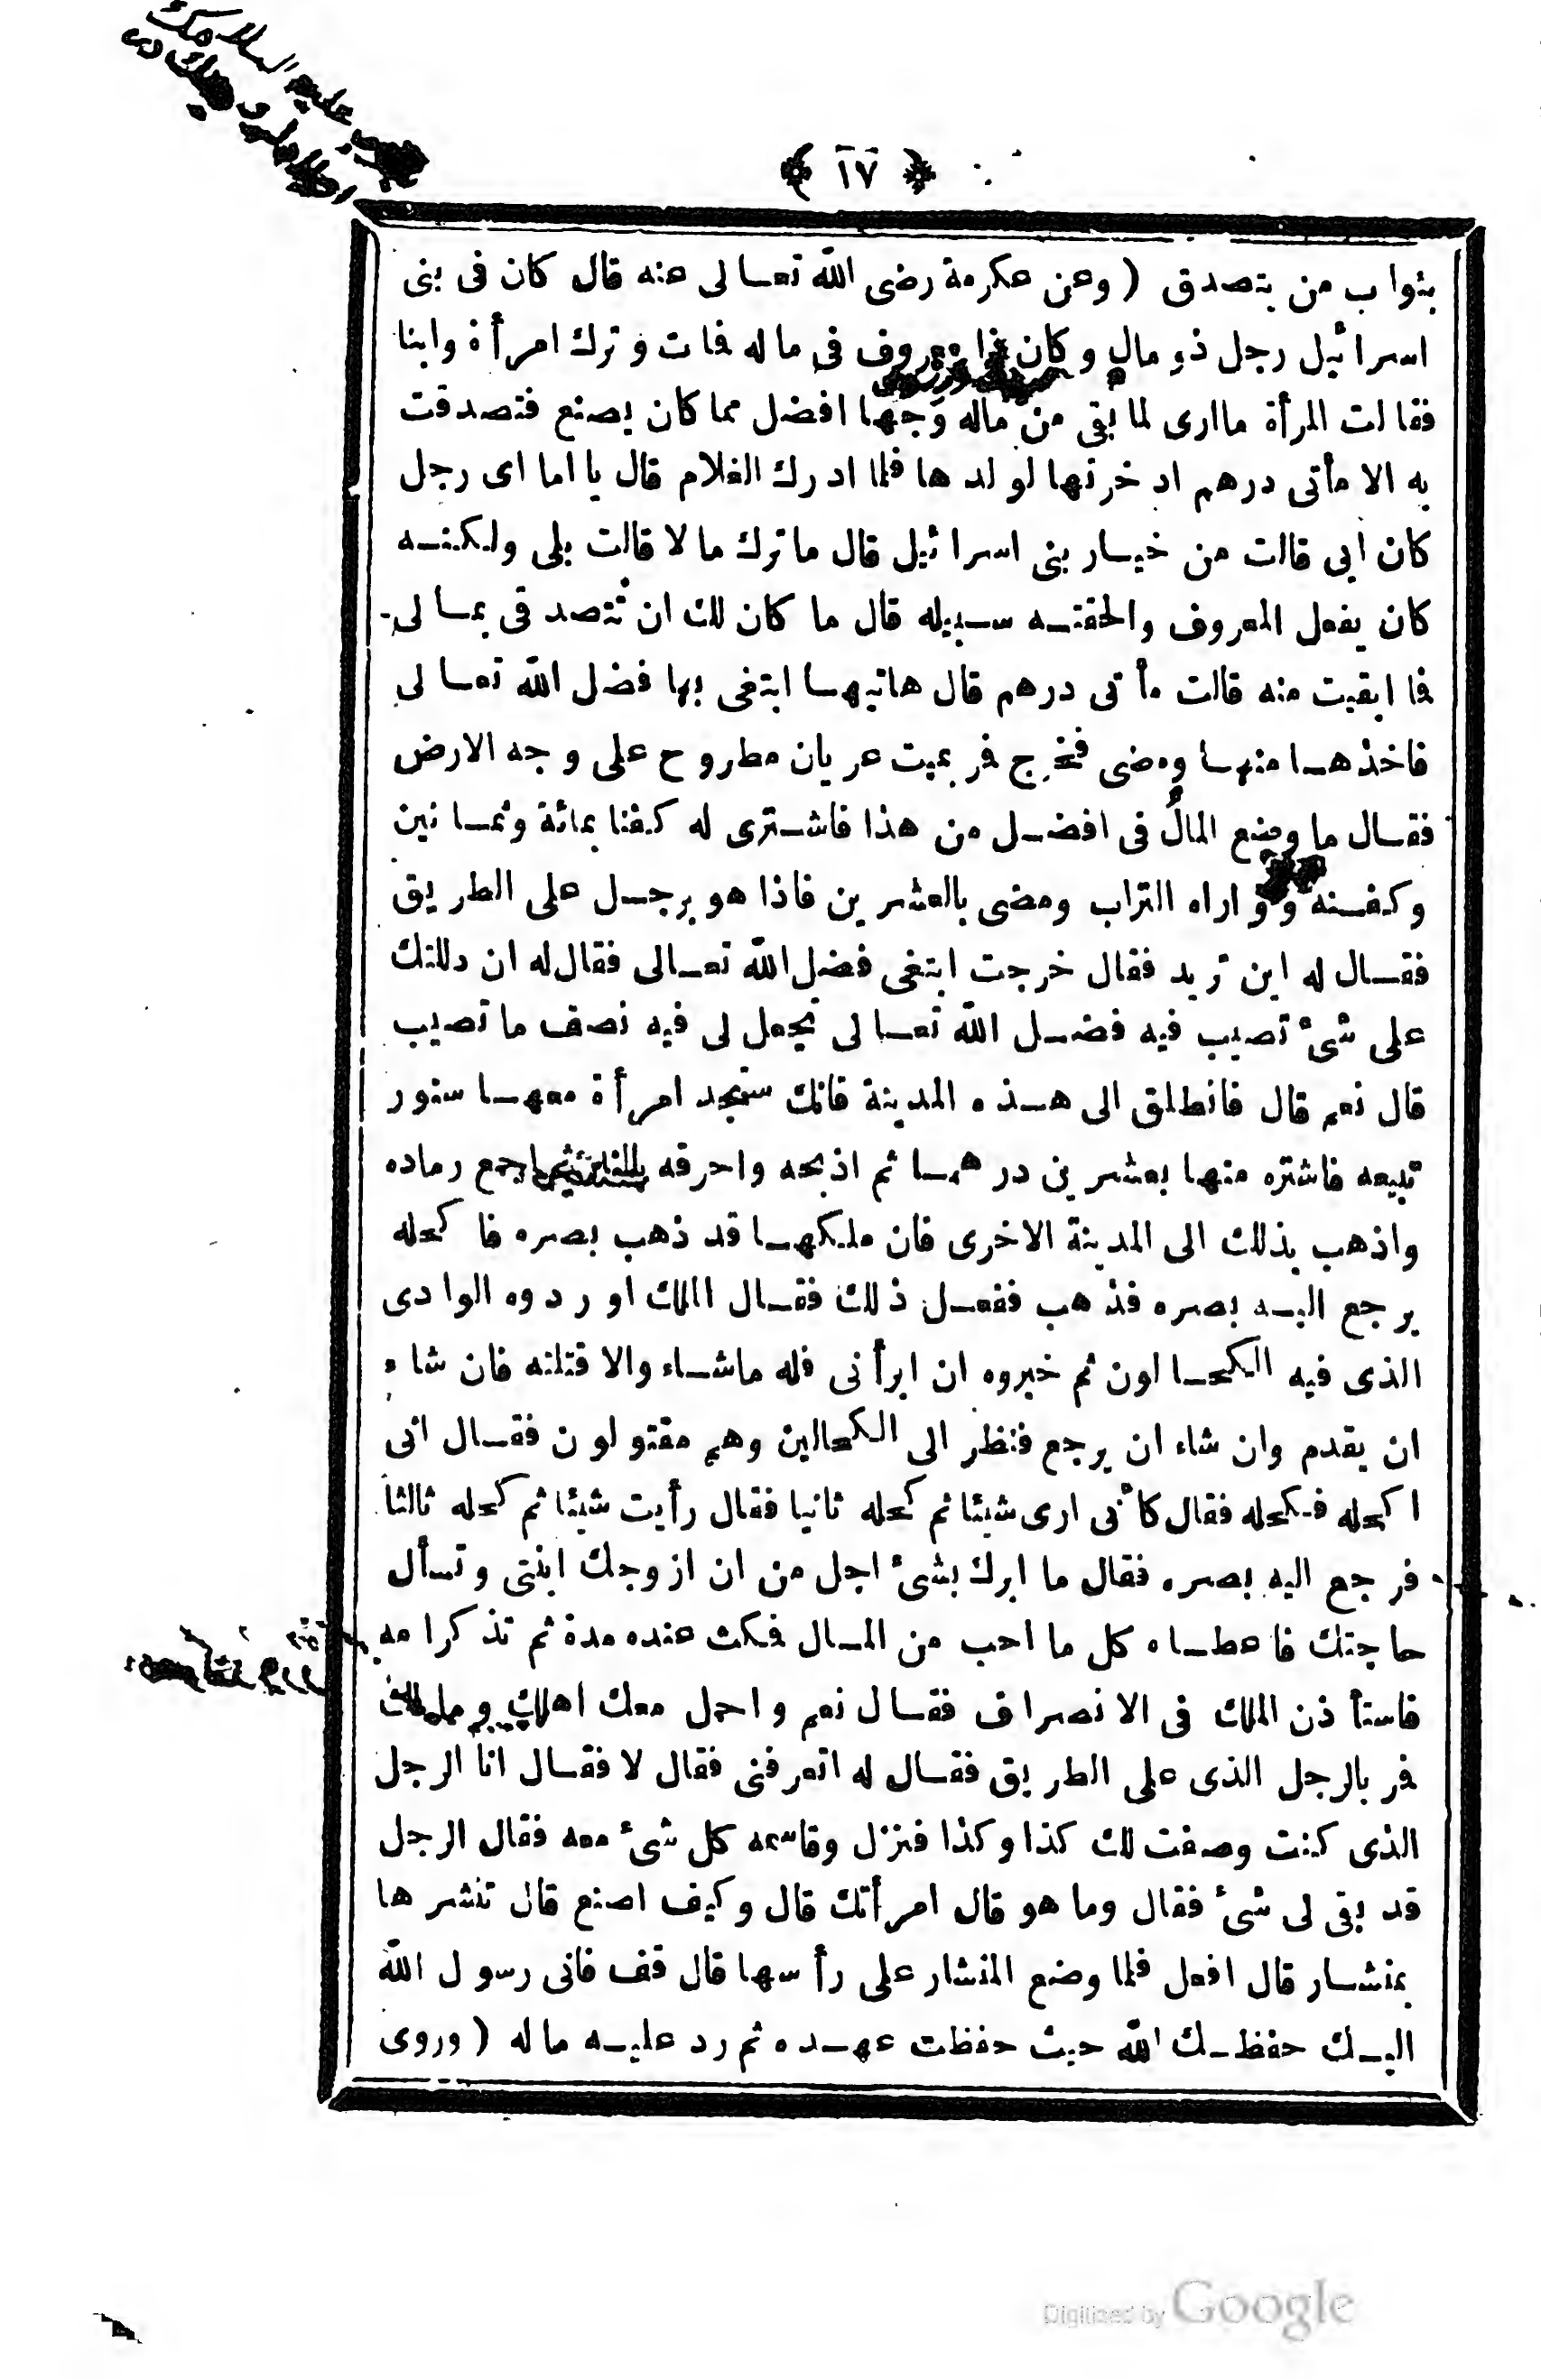 ﴿ ١٧ ﴾
بثواب من يتصدق ( وعن عكرمة رضى الله تعالى عنه قال كان فى بنى
اسرائيل رجل ذو مال وكان ذا معروف فى ماله فمات وترك امرأة وابنا
فقالت المرأة ماارى لما بقى من ماله وجها افضل مما كان يصنع فتصدقت
به الا مأتى درهم ادخرتها لولدها فلما ادرك الغلام قال يا اما اى رجل
كان ابى قالت من خيار بنى اسرائيل قال ماترك مالا قالت بلى ولكنه
كان يفعل المعروف والحقته سبيله قال ما كان لك ان تتصدقى بمالى
فما ابقيت منه قالت مأتى درهم قال هاتيها ابتغى بها فضل الله تعالى
فاخذها منها ومضى فخرج فمر بميت عريان مطروح على وجه الارض
فقال ما وضع المال فى افضل من هذا فاشترى له كفنا بمائة وثمانين
وكفنه وواراه التراب ومضى بالعشرين فاذا هو برجل على الطريق
فقال له اين تريد فقال خرجت ابتغى فضل الله تعالى فقال له ان دللتك
على شئ تصيب فيه فضل الله تعالى تجعل لى فيه نصف ما تصيب
قال نعم قال فانطلق الى هذه المدينة فانك ستجد امرأة معها سنور
تبيعه فاشتره منها بعشرين درهما ثم اذبحه واحرقه بالنار ثم اجمع رماده
واذهب بذلك الى المدينة الاخرى فان ملكها قد ذهب بصره فاكحله
يرجع اليه بصره فذهب ففعل ذلك فقال الملك اوردوه الوادى
الذى فيه الكحالون ثم خبروه ان ابرأنى فله ماشاء والا قتلته فان شاء
ان يقدم وان شاء ان يرجع فنظر الى الكحالين وهم مقتولون فقال انى
اكحله فكحله فقال كأنى ارى شيئا ثم كحله ثانيا فقال رأيت شيئا ثم كحله ثالثا
فرجع اليه بصره فقال ما ابرك بشئ اجل من ان ازوجك ابنتى وتسأل
حاجتك فاعطاه كل ما احب من المال فمكث عنده مدة ثم تذكر امه
فاستأذن الملك فى الانصراف فقال نعم واحمل معك اهلك ومالك
فمر بالرجل الذى على الطريق فقال له اتعرفنى فقال لا فقال انا الرجل
الذى كنت وصفت لك كذا وكذا فنزل وقاسمه كل شئ معه فقال الرجل
قد بقى لى شئ فقال وما هو قال امرأتك قال وكيف اصنع قال تنشرها
بمنشار قال افعل فلما وضع المنشار على رأسها قال قف فانى رسول الله
اليك حفظك الله حيث حفظت عهده ثم رد عليه ماله ( وروى
Digitized by Google